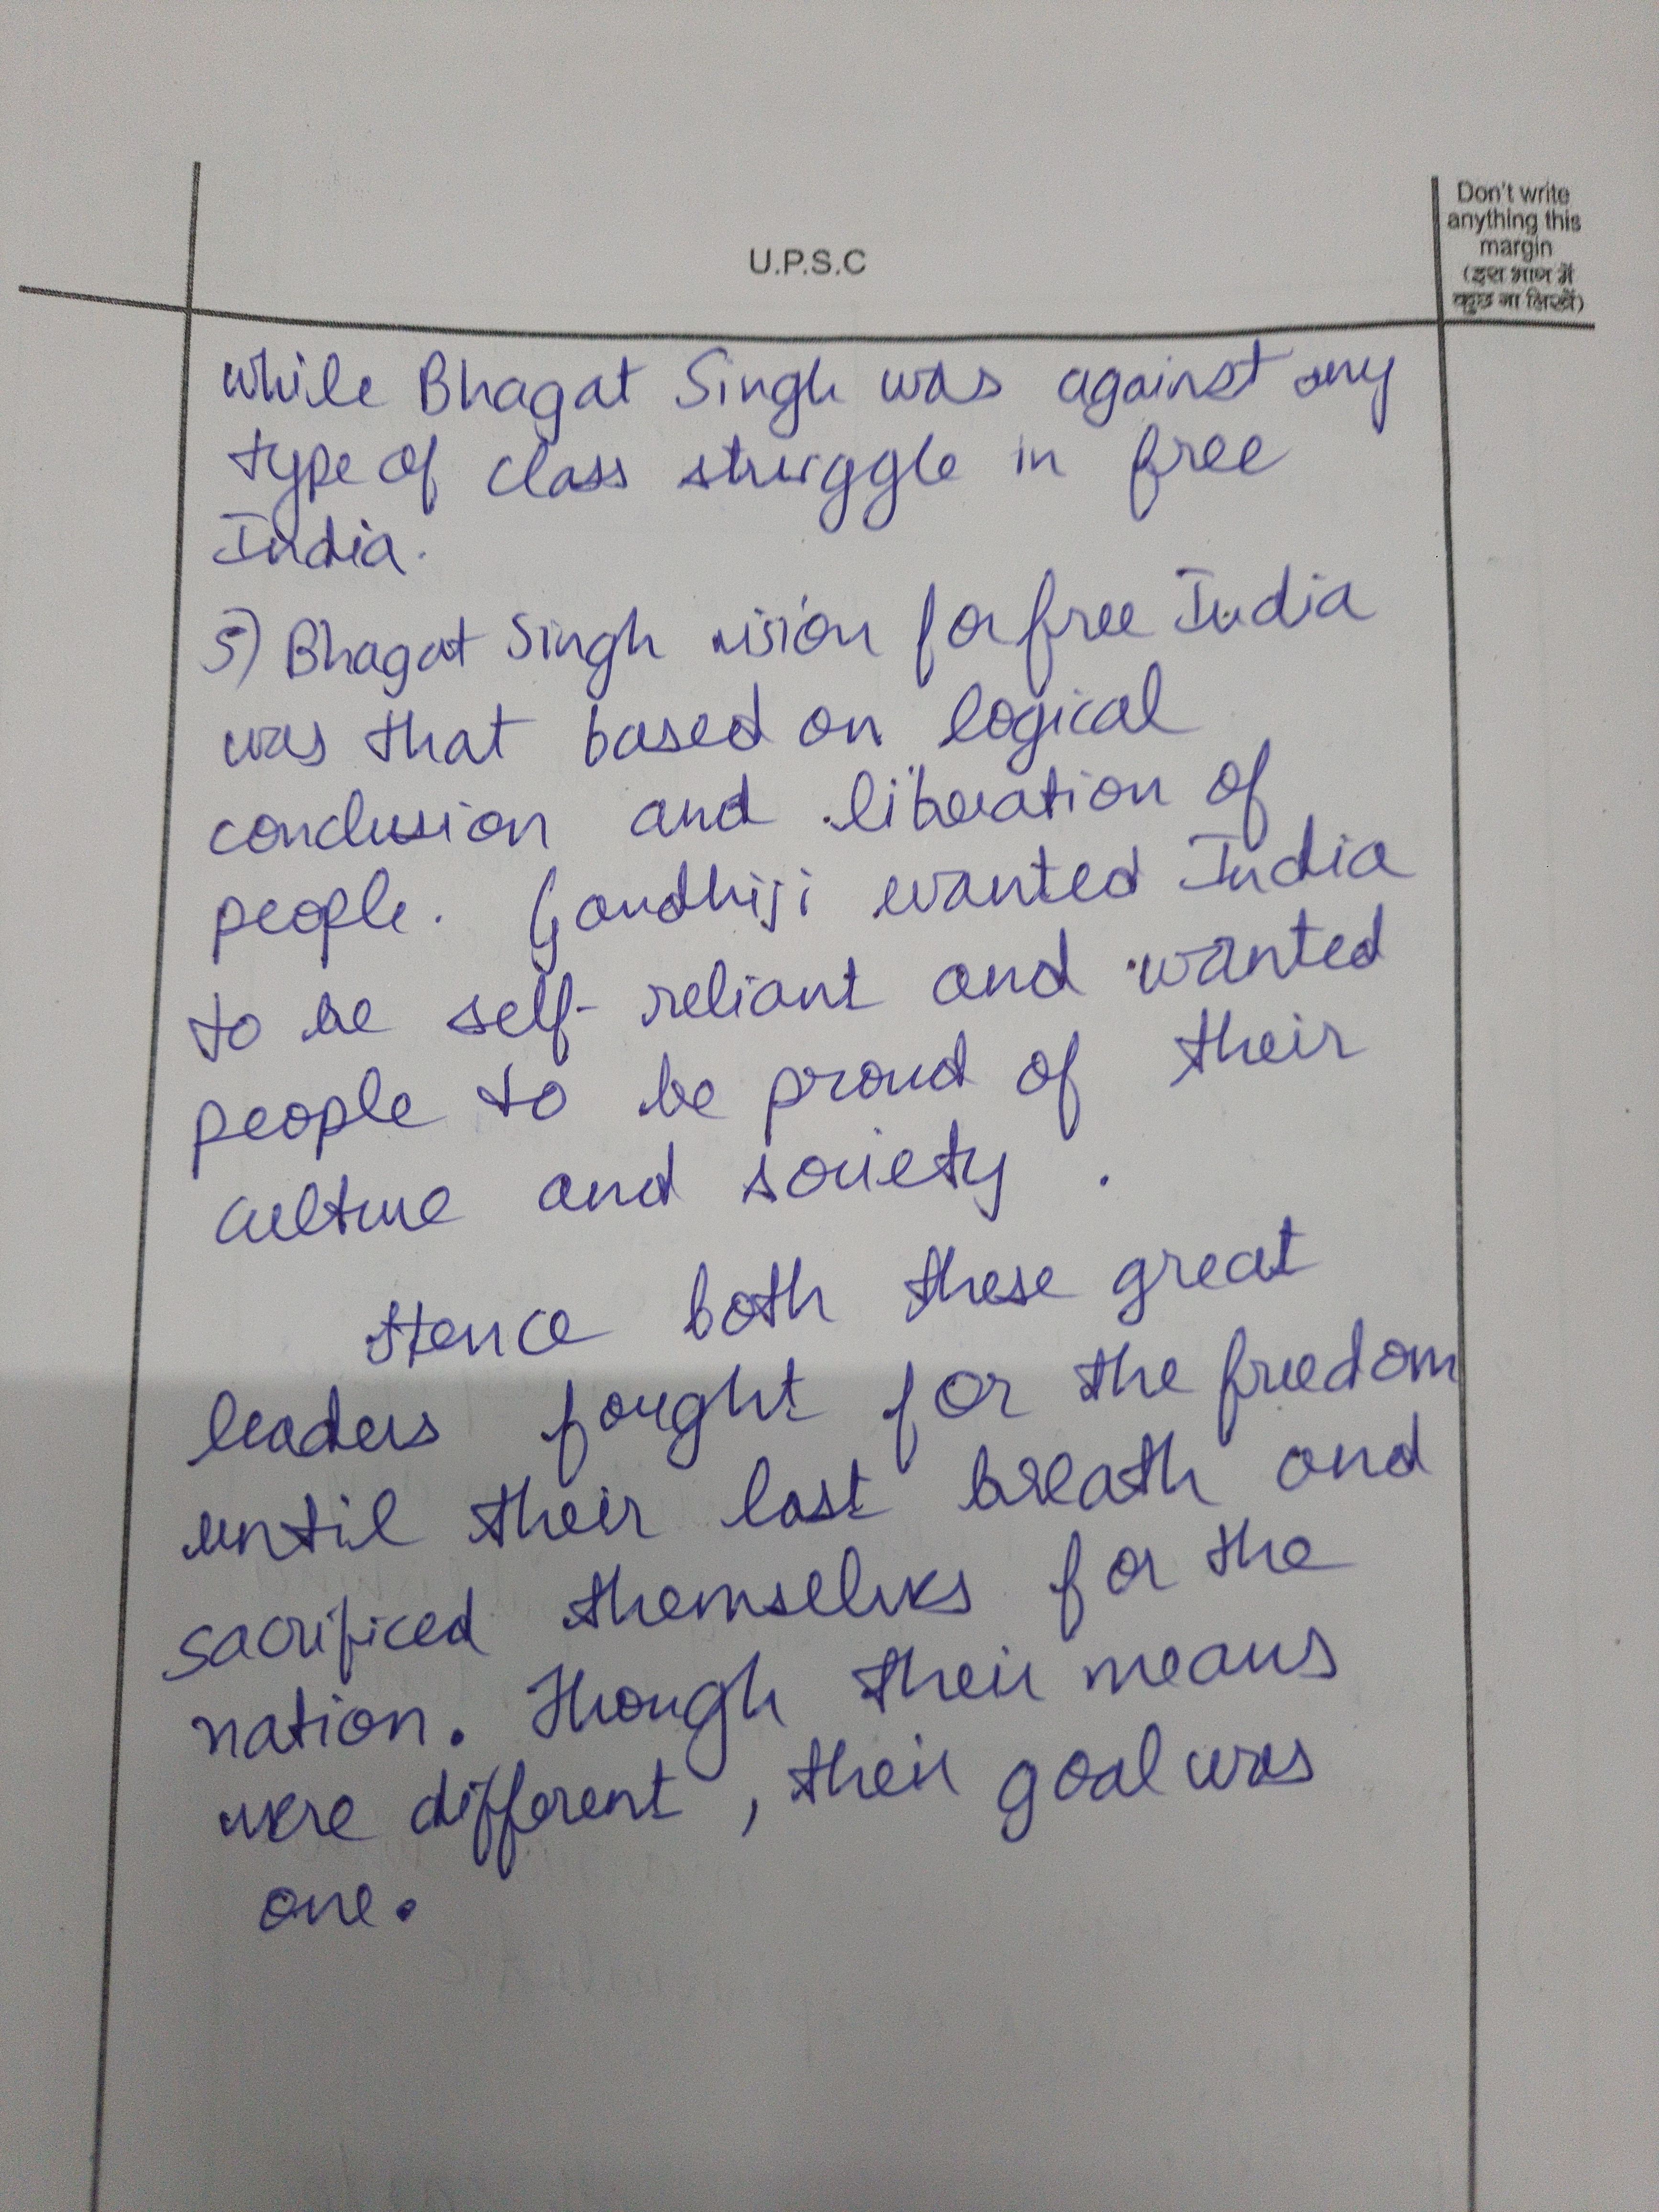 U.P.S.C
Don't write
anything this
margin
(इस भाग में
कुछ ना लिखें)
while Bhagat Singh was against any
type of class struggle in free
India.
5) Bhagat Singh vision for free India
was that based on logical
conclusion and liberation of
people. Gandhiji wanted India
to be self-reliant and wanted
people to be proud of their
culture and society.
Hence both these great
leaders fought for the freedom
until their last breath and
sacrificed themselves for the
nation. Though their means
were different, their goal was
one.